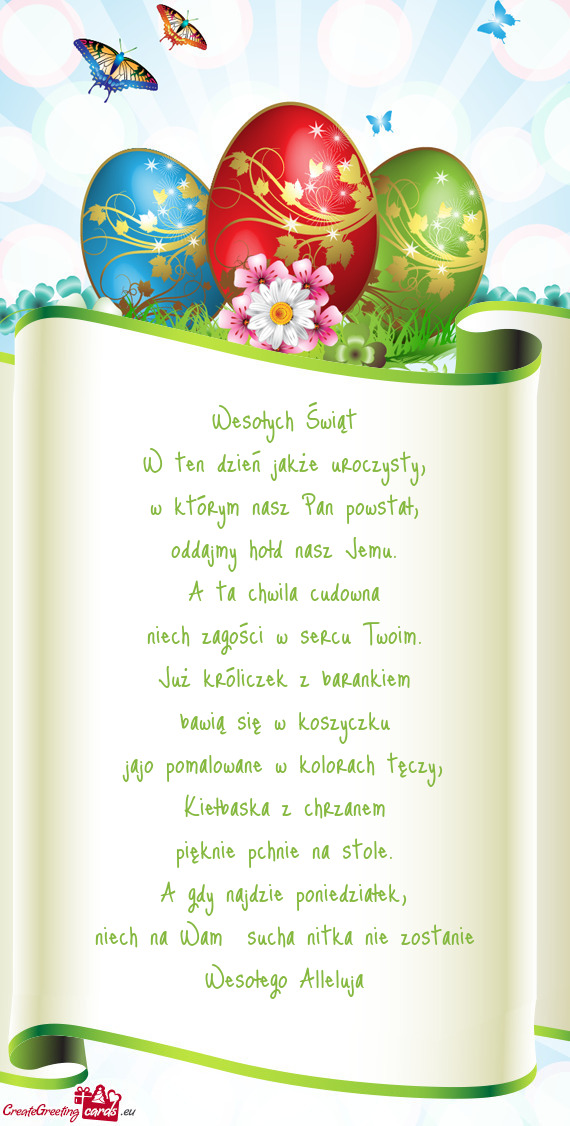 Wesołych Świąt
W ten dzień jakże uroczysty,
w którym nasz Pan powstał,
oddajmy hołd nasz Jemu.
A ta chwila cudowna
niech zagości w sercu Twoim.
Już króliczek z barankiem
bawią się w koszyczku
jajo pomalowane w kolorach tęczy,
Kiełbaska z chrzanem
pięknie pchnie na stole.
A gdy najdzie poniedziałek,
niech na Wam sucha nitka nie zostanie
Wesołego Alleluja
CreateGreeting cards .eu